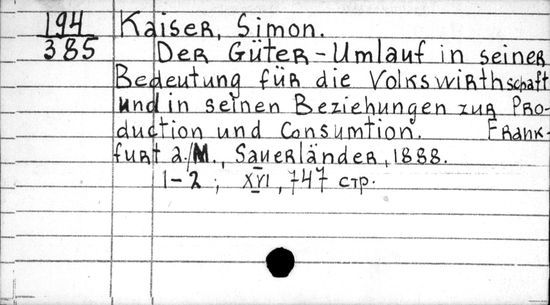 194 Kaiser, Simon.
385 Der Güter-Umlauf in seiner
Bedeutung für die Volkswirthschaft
und in seinen Beziehungen zur Pro-
duction und Consumtion. Frank-
furt a./M., Sauerländer, 1888.
1-2; XVI, 747 стр.